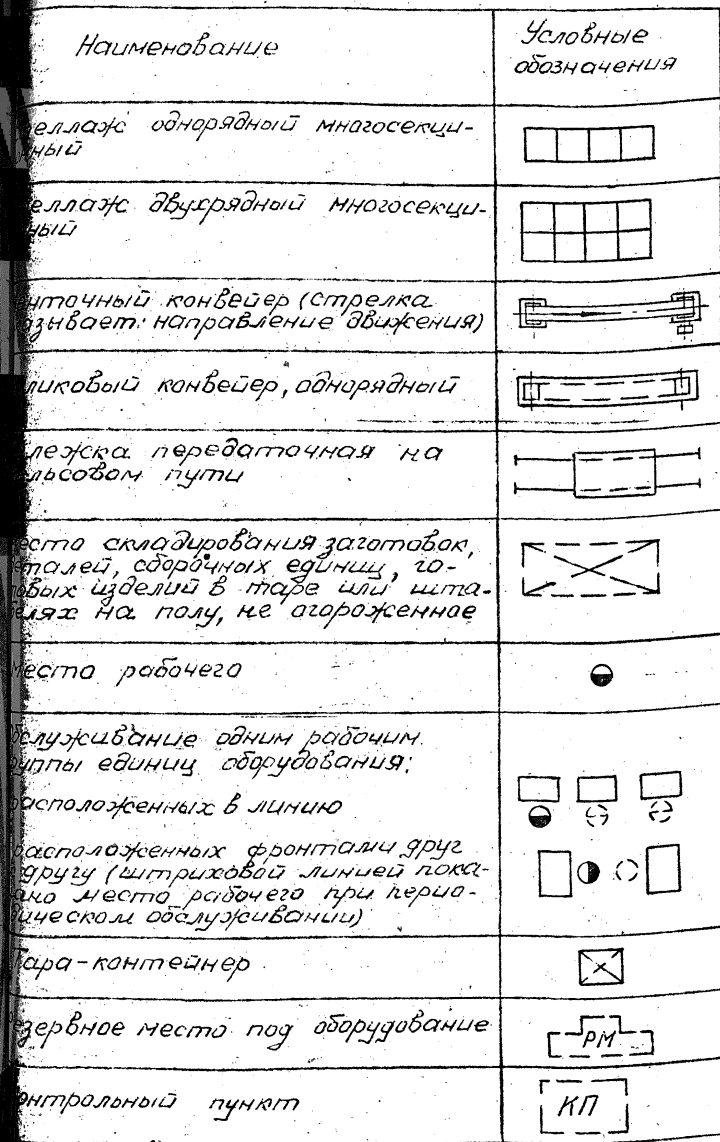 Наименование
Условные
обозначения
еллаж однорядный многосекци-
ный
еллаж двухрядный многосекци-
ный
нточный конвейер (стрелка
азывает направление движения)
ликовый конвейер, однорядный
лежка передаточная на
льсовом пути
есто складирования заготовок,
еталей, сборочных единиц, го-
товых изделий в таре или шта-
елях на полу, не огороженное
место рабочего
бслуживание одним рабочим
уппы единиц оборудования:
расположенных в линию
расположенных фронтами друг
другу (штриховой линией пока-
ано место рабочего при перио-
дическом обслуживании)
Тара-контейнер
езервное место под оборудование
РМ
онтрольный пункт
КП